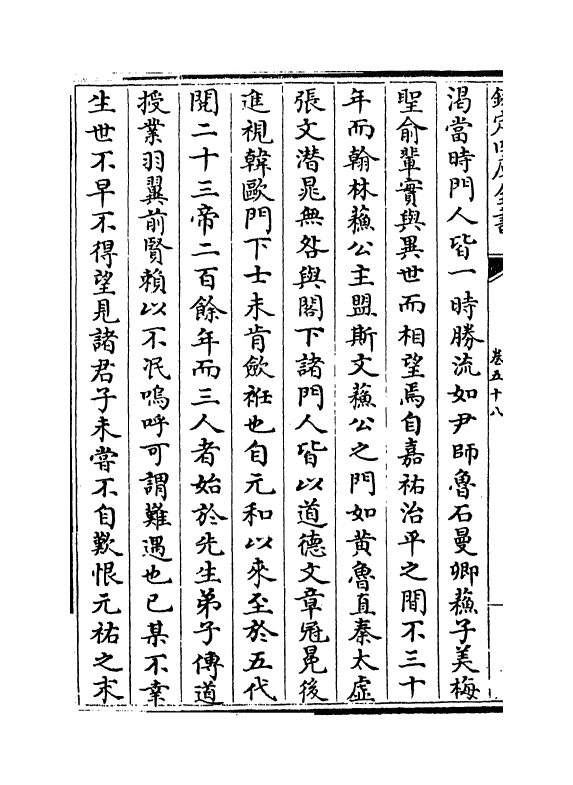 欽定四庫全書
卷五十八
渴當時門人皆一時勝流如尹師魯石曼卿蘓子美梅
聖俞輩實與異世而相望焉自嘉祐治平之間不三十
年而翰林蘓公主盟斯文蘓公之門如黄魯直秦太虛
張文潛晁無咎與閣下諸門人皆以道德文章冠冕後
進視韓歐門下士未肯歛袵也自元和以來至於五代
閱二十三帝二百餘年而三人者始於先生弟子傳道
授業羽翼前賢賴以不泯嗚呼可謂難遇也已某不幸
生世不早不得望見諸君子未嘗不自歎恨元祐之末